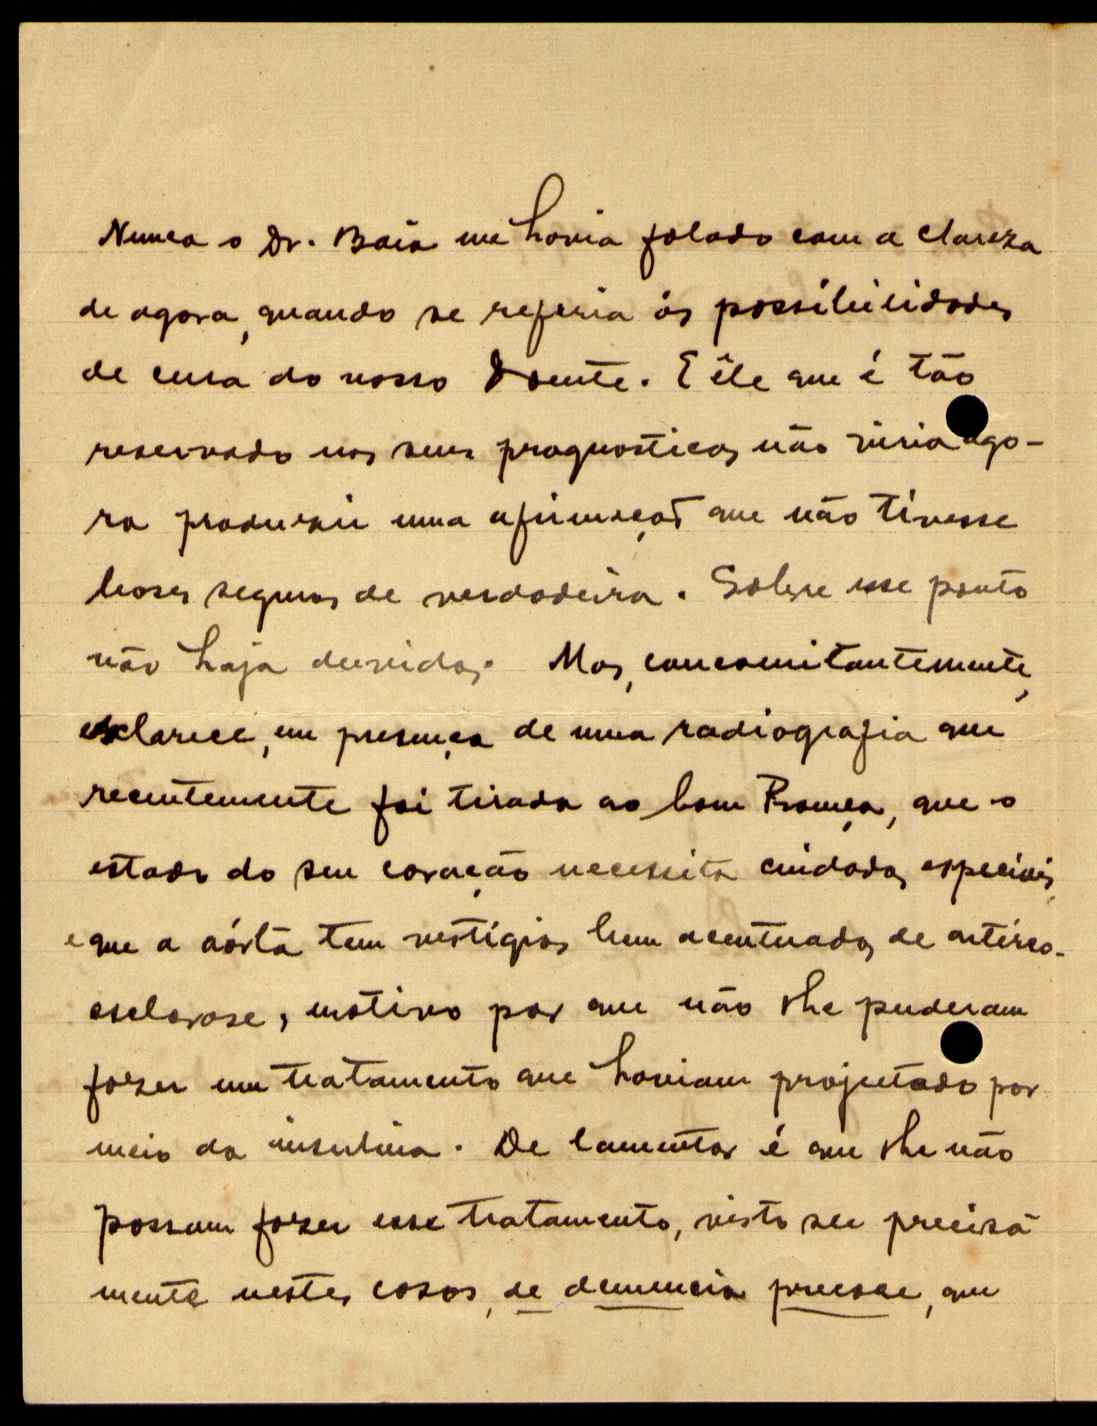 Nunca o Dr. Baía me havia falado com a clareza
de agora, quando se referia ás possibilidades
de cura do nosso Doente. E êle que é tão
reservado nos seus prognosticos, não viria ago-
ra produzir uma afirmação que não tivesse
bases seguras de verdadeira. Sobre esse ponto
não haja duvidas. Mas, concomitantemente,
esclarece, em presença de uma radiografia que
recentemente foi tirada ao bom Proença, que o
estado do seu coração necessita cuidados especiais,
e que a aórta tem vestigios bem acentuados de artereo-
esclerose, motivo por que não lhe puderam
fazer um tratamento que haviam projectado por
meio da insulina. De lamentar é que lhe não
possam fazer esse tratamento, visto ser precisa-
mente nestes casos, de demencia precoce, que